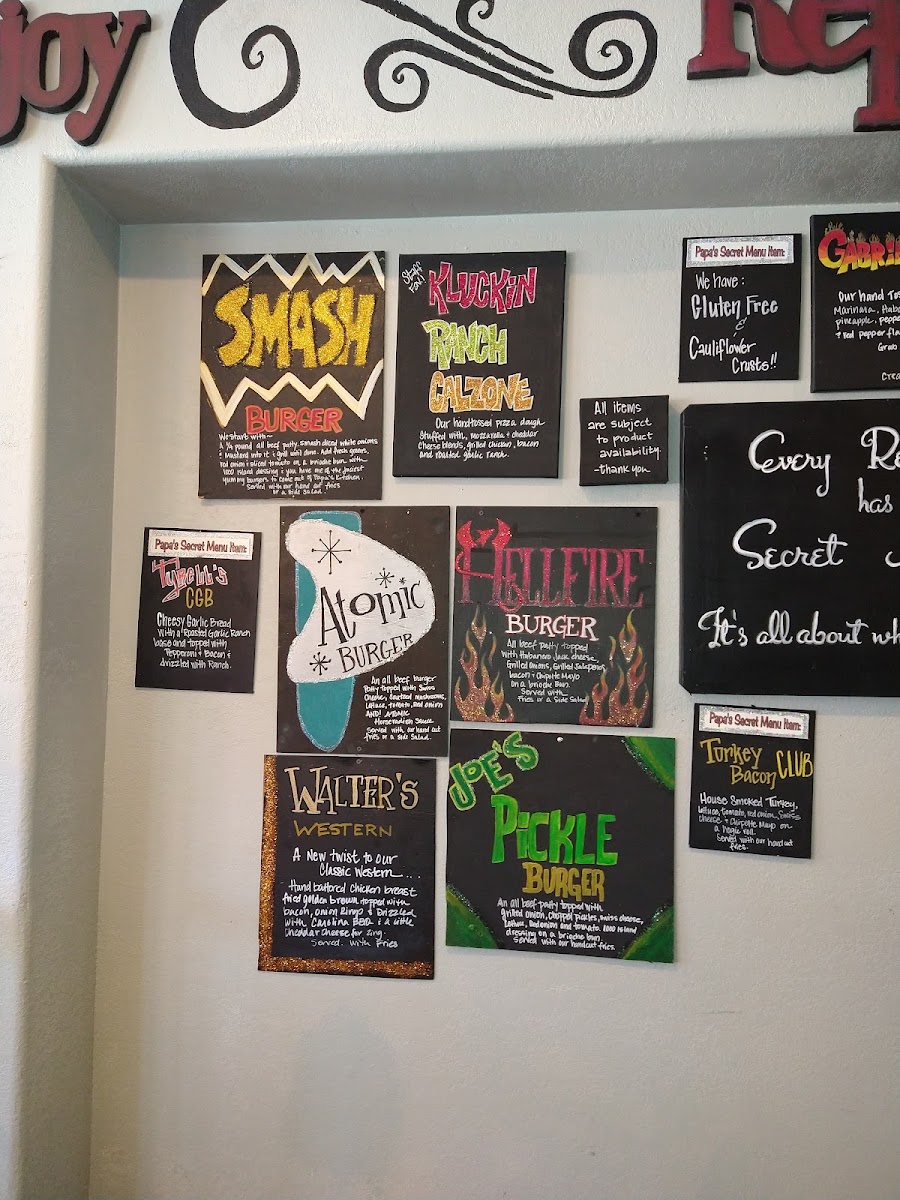 joy
Rep
SMASH
BURGER
We start with~
A ⅓ pound all beef patty, smash diced white onions
& Mustard into it & grill well done. Add fresh greens,
red onion & sliced tomato on a brioche bun with
1000 Island dressing & you have one of the juciest
yummy burgers to come out of Papa's Kitchen.
Served with our hand cut fries
or a side Salad.
Staff
Fav!
KLUCKIN
RANCH
CALZONE
Our handtossed pizza dough
Stuffed with, mozzarella & cheddar
Cheese blends, grilled chicken, bacon
and roasted garlic ranch.
All items
are subject
to product
availability.
-thank you
Papa's Secret Menu Item:
We have:
Gluten Free
&
Cauliflower
Crusts!!
GABRI
Our hand tos
Marinara, Haba
pineapple, peppe
& red pepper fla
Grab
Crea
Every Re
has
Secret
It's all about wh
Papa's Secret Menu Item:
Tyrell's
CGB
Cheesy Garlic Bread
With a Roasted Garlic Ranch
base and topped with
Pepperoni & Bacon &
drizzled with Ranch.
Atomic
BURGER
An all beef burger
Patty topped with Swiss
Cheese, Sauteed mushrooms,
Lettuce, tomato, red onion
AND! ATOMIC
Horseradish Sauce
Served with our hand cut
fries or a side Salad.
HELLFIRE
BURGER
All beef patty topped
with Habanero Jack cheese,
Grilled onions, Grilled Jalapenos,
bacon & Chipotle Mayo
on a brioche Bun.
Served with
Fries or a Side Salad
WALTER'S
WESTERN
A New twist to our
Classic Western....
Hand battered Chicken breast
fried golden brown topped with
bacon, onion Rings & Drizzled
with Carolina BBQ & a little
Cheddar Cheese for Zing.
Served with Fries
JOE'S
PiCKLE
BURGER
An all beef patty topped with
grilled onion, Chopped pickles, swiss cheese,
Lettuce, Red onion and tomato. 1000 Island
dressing on a brioche bun.
Served with our handcut fries.
Papa's Secret Menu Item:
Turkey
Bacon CLUB
House Smoked Turkey,
Lettuce, tomato, red onion, Swiss
Cheese & Chipotle Mayo on
a hogie roll.
Served with our hand cut
fries.